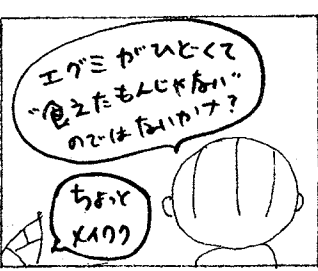 エグミがひどくて
“食えたもんじゃない”
のではないかナ？
ちょっと
メイワク